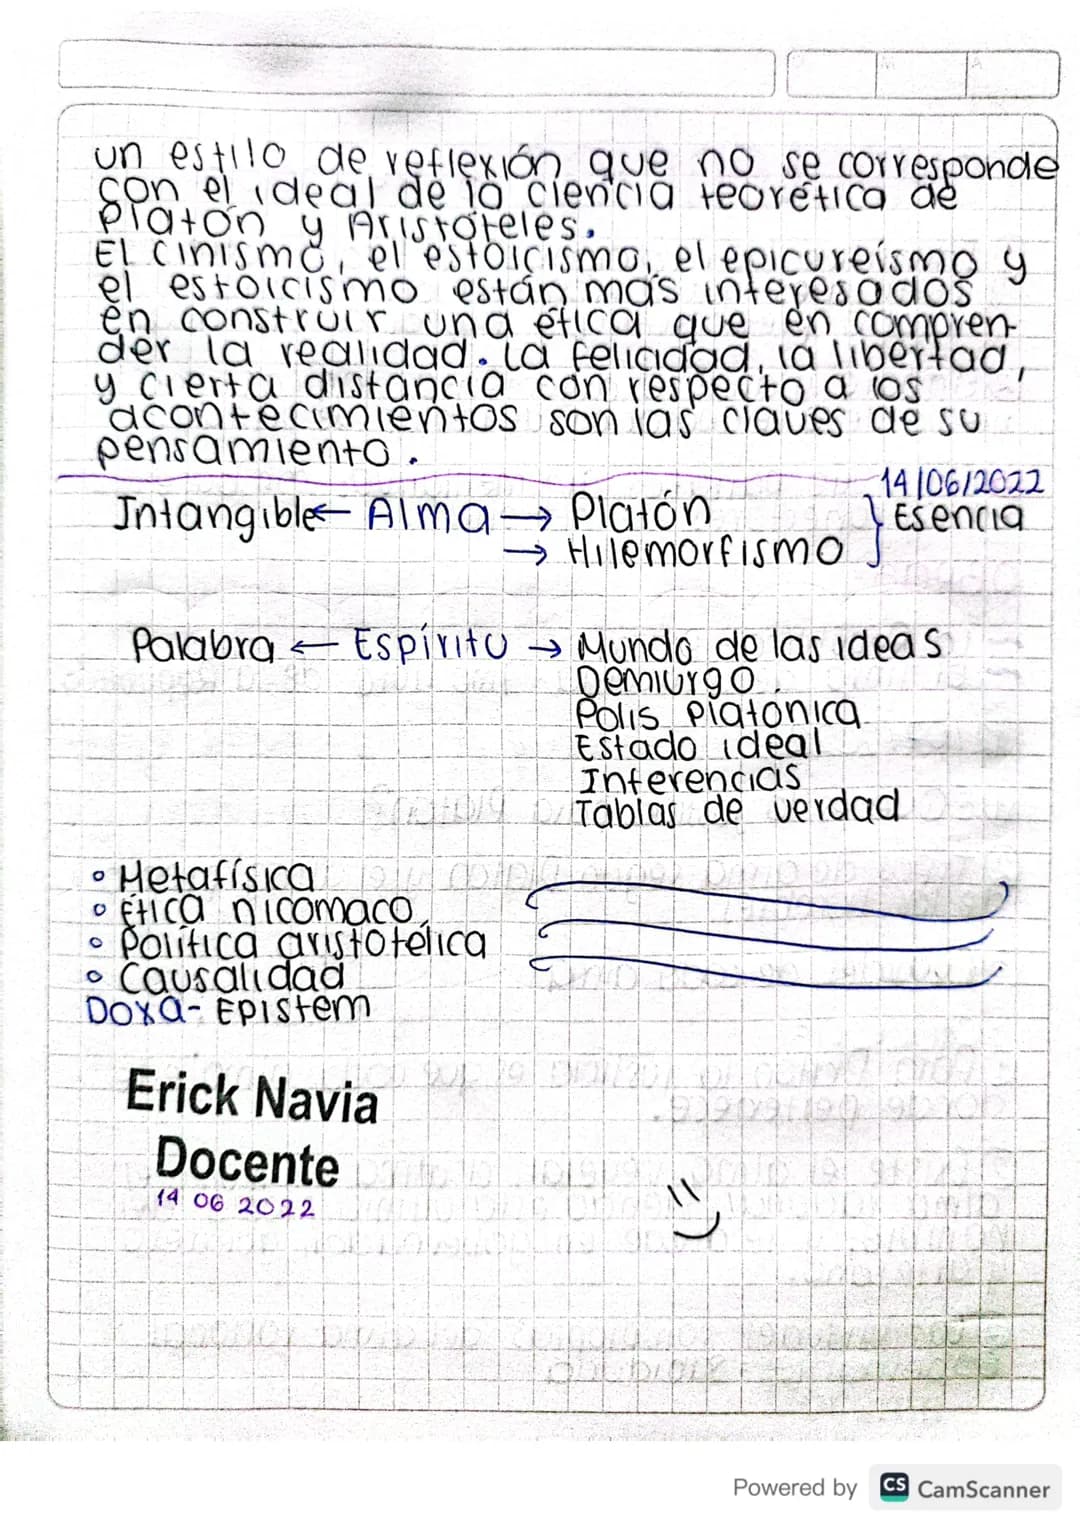 un estilo de reflexión que no se corresponde
con el ideal de la ciencia teorética de
Platón y Aristóteles.
El cinismo, el estoicismo, el epicureísmo y
el estoicismo están más interesados
en construir una ética que en compren-
der la realidad. La felicidad, la libertad,
y cierta distancia con respecto a los
acontecimientos son las claves de su
pensamiento.
14/06/2022
Intangible ← Alma → Platón } Esencia
→ Hilemorfismo
Palabra ← Espíritu → Mundo de las ideas
Demiurgo.
Polis platónica
Estado ideal
Inferencias
Tablas de verdad
• Metafísica
• Ética nicomaco,
• Política aristotélica
• Causalidad
Doxa- Epistem
Erick Navia
Docente
14 06 2022
Powered by CS CamScanner